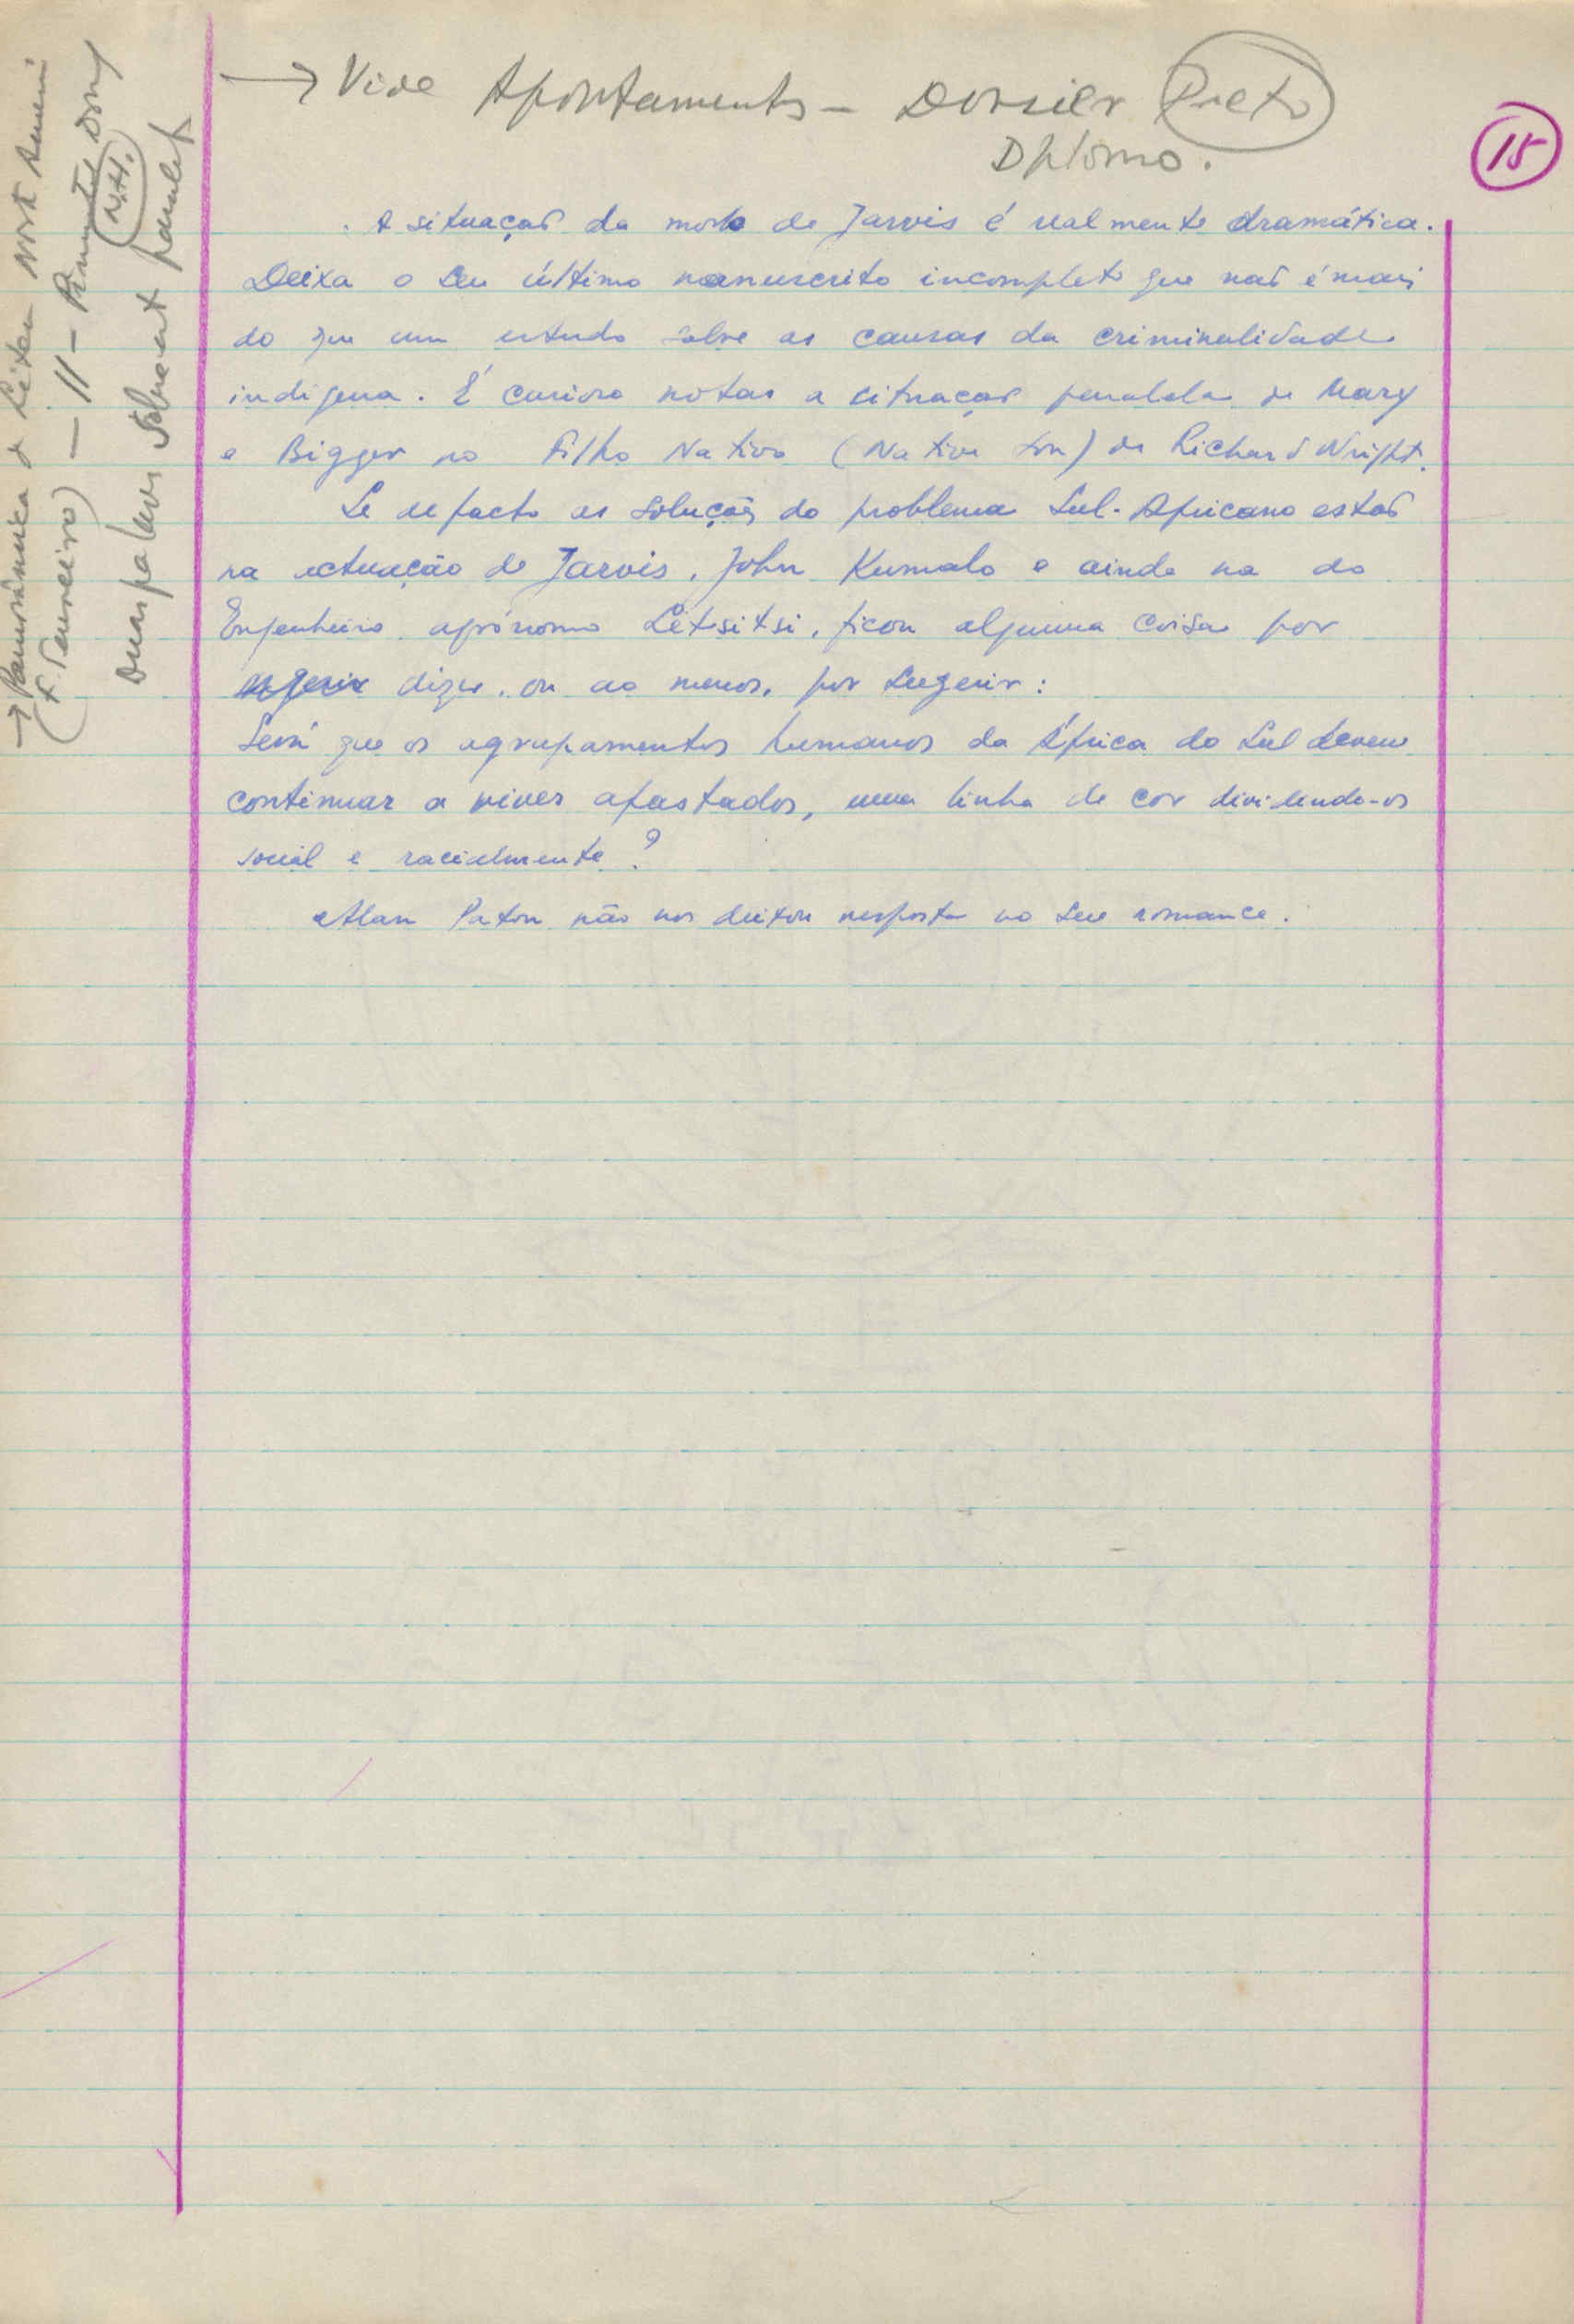 → Vide Apontamentos – Dossier Preto
Dhlomo.
15
A situação da morte de Jarvis é realmente dramática.
Deixa o seu último manuscrito incompleto que não é mais
do que um estudo sobre as causas da criminalidade
indígena. É curioso notar a situação paralela de Mary
e Bigger no Filho Nativo (Native Son) de Richard Wright.
Se de facto as soluções do problema Sul-Africano estão
na actuação de Jarvis, John Kumalo e ainda na do
Engenheiro agrónomo Letsitsi, ficou alguma coisa por
dizer, ou ao menos, por sugerir:
Será que os agrupamentos humanos da África do Sul devem
continuar a viver afastados, uma linha de cor dividindo-os
social e racialmente?
Alan Paton não nos deixou resposta no seu romance.
→ Panorâmica d Liter Nort Ameri
(F. Tenreiro) – 11 –
Duas palavras sobre